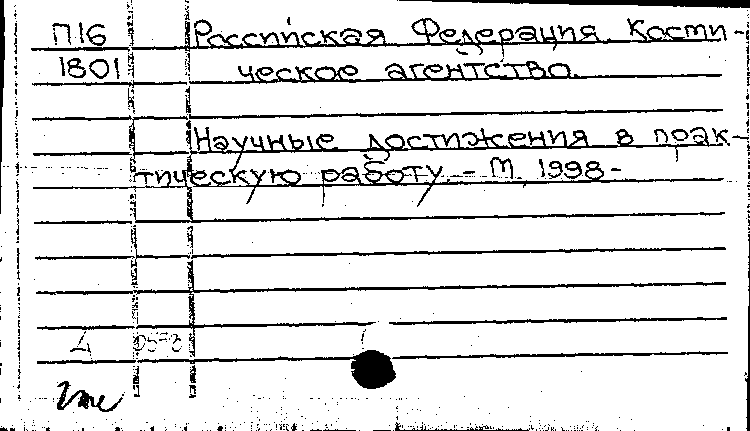 П16 Российская Федерация. Косми-
1801 ческое агентство.
Научные достижения в прак-
тическую работу. - М., 1998 -